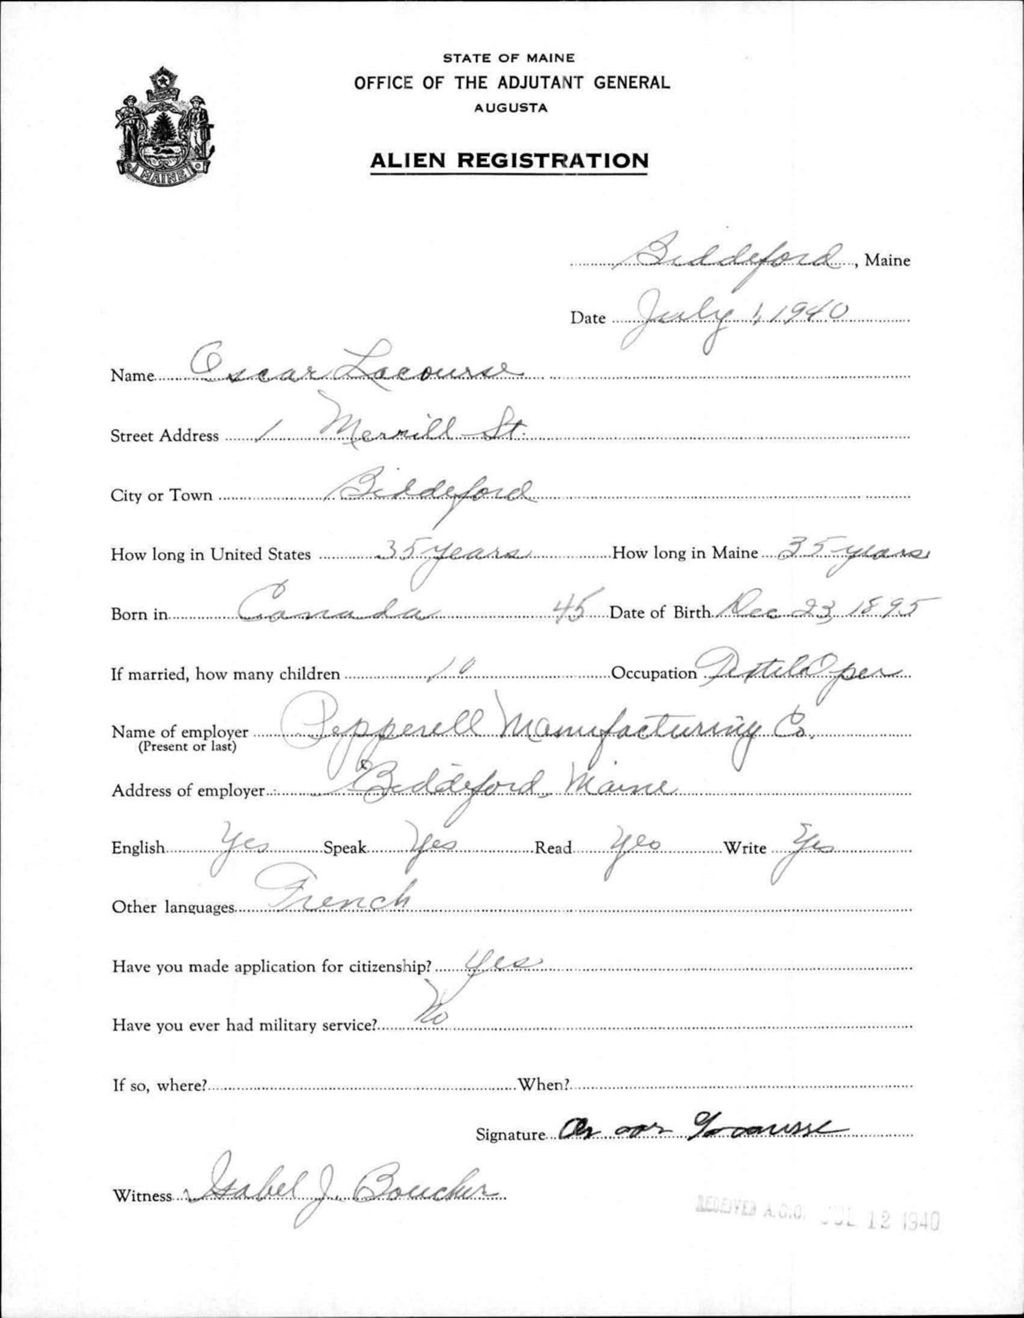 STATE OF MAINE
OFFICE OF THE ADJUTANT GENERAL
AUGUSTA
ALIEN REGISTRATION
MAINE
Biddeford, Maine
Date July 1, 1940
Name Oscar Lacourse
Street Address 1 Merrill St.
City or Town Biddeford
How long in United States 35 years How long in Maine 35 years
Born in Canada 45 Date of Birth Dec 23, 1895
If married, how many children 10 Occupation Oper
Name of employer Pepperell Manufacturing Co.
(Present or last)
Address of employer Biddeford, Maine
English Yes Speak Yes Read Yes Write Yes
Other languages French
Have you made application for citizenship? Yes
Have you ever had military service? No
If so, where? When?
Signature
Witness Isabel J. Boucher
RECEIVED A.G.O. JUL 12 1940